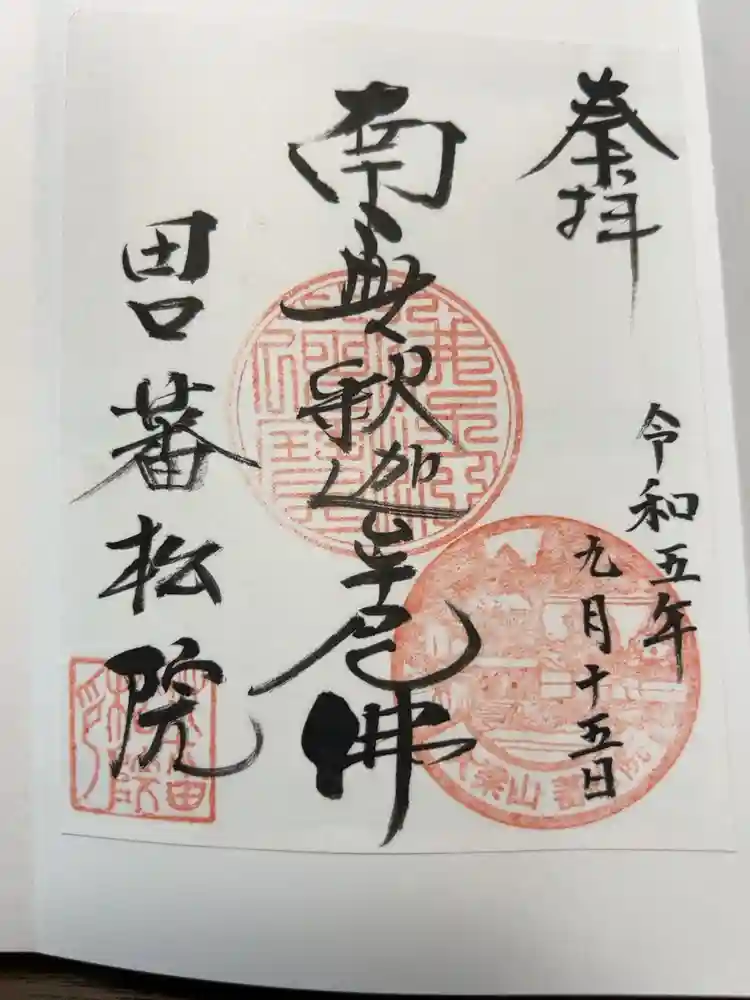 奉拝
令和五年
九月十五日
南無釈迦牟尼佛
田口
蕃松院